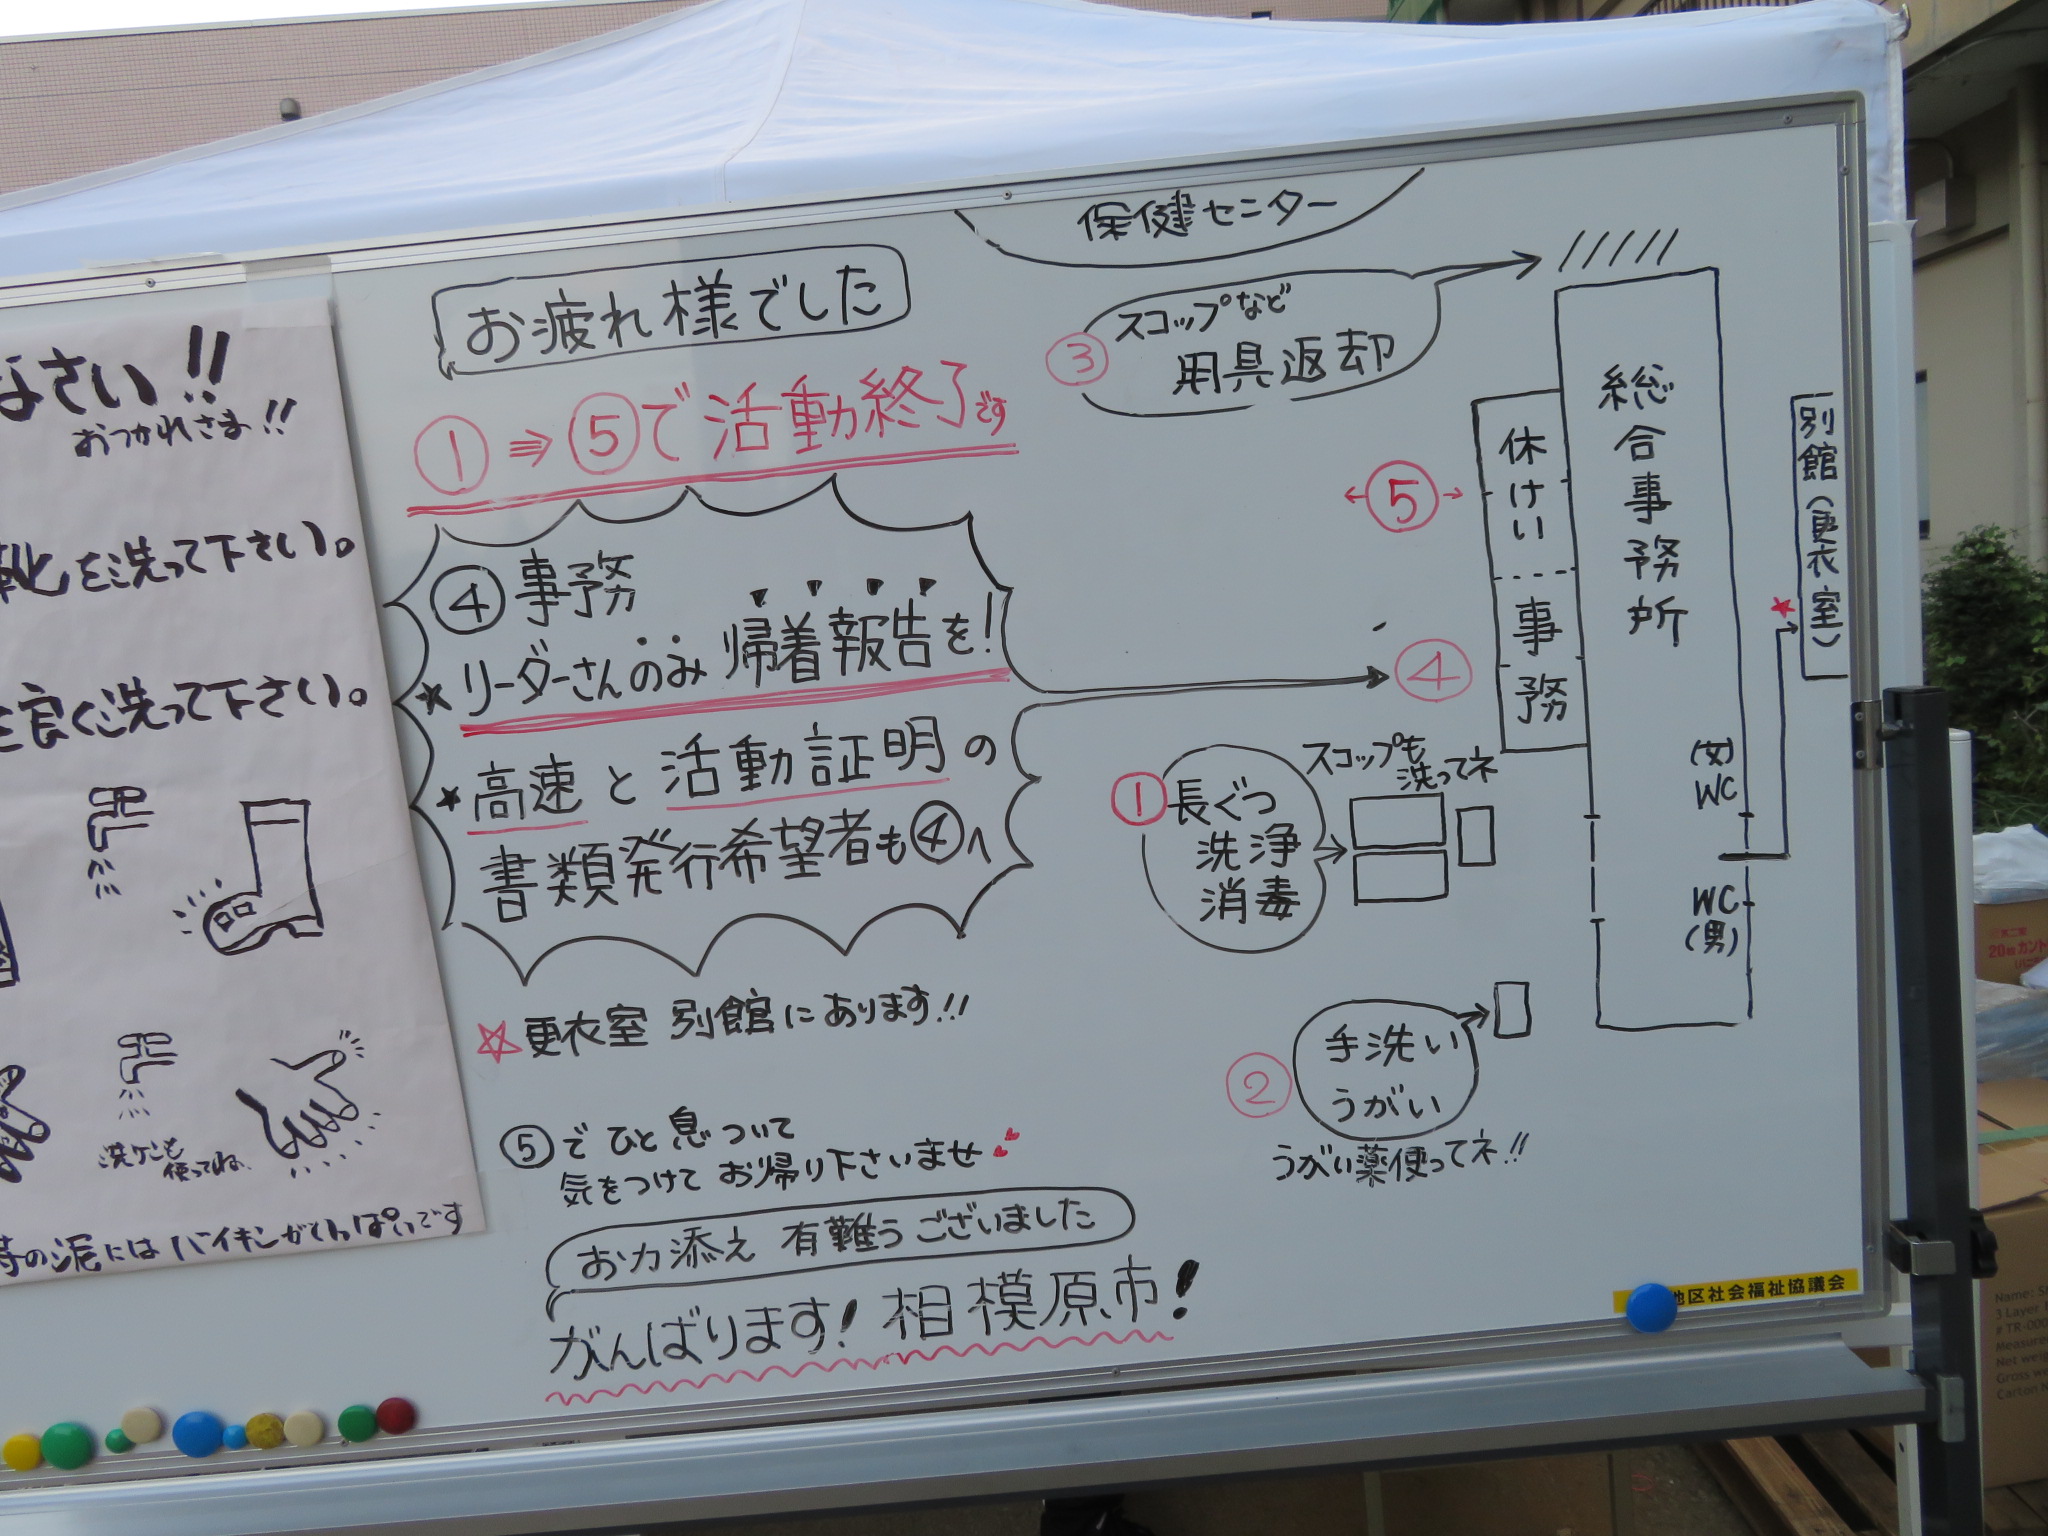 なさい!!
おつかれさま!!
靴を洗って下さい。
を良く洗って下さい。
洗ケンも
使ってね。
の泥にはバイキンがいっぱいです
保健センター
お疲れ様でした
①⇒⑤で活動終了です
④事務
★リーダーさんのみ帰着報告を!
★高速と活動証明の
書類発行希望者も④へ
☆更衣室 別館にあります!!
⑤でひと息ついて
気をつけてお帰り下さいませ
お力添え 有難うございました
がんばります!相模原市!
③スコップなど
用具返却
総合事務所
別館(更衣室)
★
休けい
事務
⑤
④
①長ぐつ
洗浄
消毒
スコップも
洗ってネ
(女)
WC
WC
(男)
②手洗い
うがい
うがい薬使ってネ!!
地区社会福祉協議会
20
Name:
3 Layer
# TR-000
Net weig
Gross we
Carton